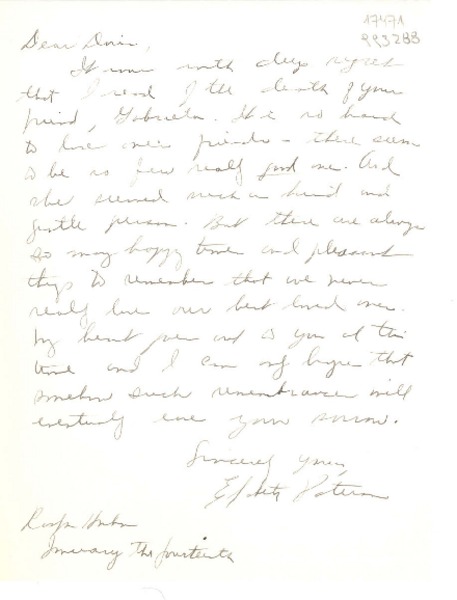 17471
993288
Dear Doris,
It was with deep regret
that I read of the death of your
friend, Gabriela. It is so hard
to lose one's friends - there seem
to be so few really good ones. And
she seemed such a kind and
gentle person. But there are always
so many happy times and pleasant
things to remember that we never
really lose our best loved ones.
My heart goes out to you at this
time and I can only hope that
somehow such remembrances will
eventually ease your sorrow.
Sincerely yours,
January the fourteenth